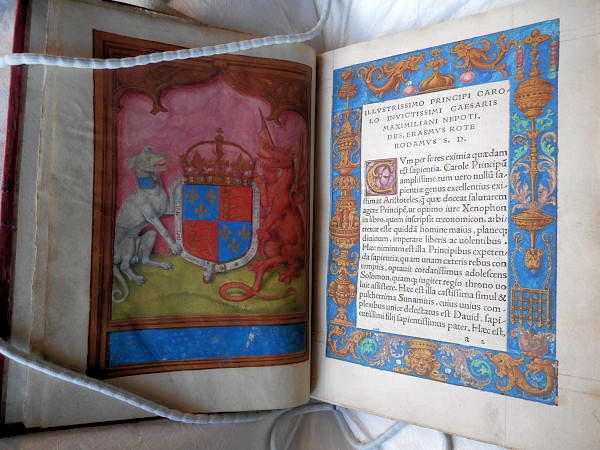 ILLVSTRISSIMO PRINCIPI CARO
LO INVICTISSIMI CAESARIS
MAXIMILIANI NEPOTI,
DES. ERASMVS ROTE
RODAMVS S. D.
CVm per se res eximia quædam
est sapientia, Carole Principũ
amplissime, tum uero nullũ sa/
pientiæ genus excellentius exi/
stimat Aristoteles, q̃ quæ doceat salutarem
agere Principẽ, ut optimo iure Xenophon
in libro, quem inscripsit œconomicon, arbi/
tretur esse quiddã homine maius, planeq;
diuinum, imperare liberis ac uolentibus.
Hæc nimirum est illa Principibus expeten/
da sapientia, quam unam cæteris rebus con
temptis, optauit cordatissimus adolescens
Solomon, quamq; iugiter regio throno uo
luit assistere. Hæc est illa castissima simul &
pulcherrima Sunamitis, cuius unius com/
plexibus unice delectatus est Dauid, sapi/
entissimi filij sapientissimus pater. Hæc est,
a 2